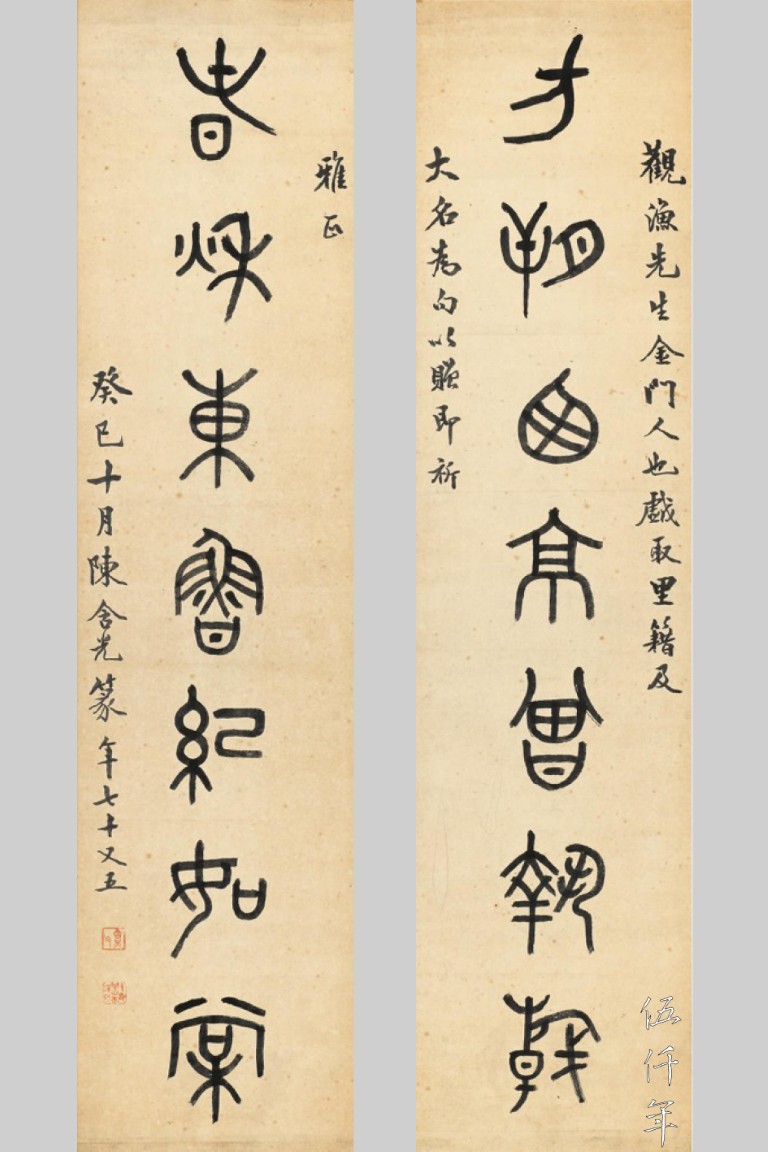 觀漁先生金門人也戲取里籍及
方朔西京曾執戟
大名為句以贈即祈
雅正
春秋東魯紀如棠
癸巳十月陳含光篆年七十又五
伍仟年